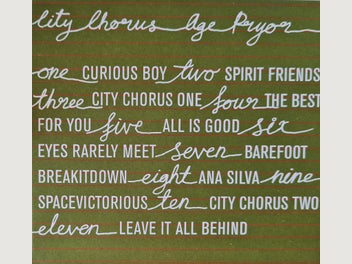 City Chorus Age Pryor
one CURIOUS BOY two SPIRIT FRIENDS
three CITY CHORUS ONE four THE BEST
FOR YOU five ALL IS GOOD six
EYES RARELY MEET seven BAREFOOT
BREAKITDOWN eight ANA SILVA nine
SPACEVICTORIOUS ten CITY CHORUS TWO
eleven LEAVE IT ALL BEHIND